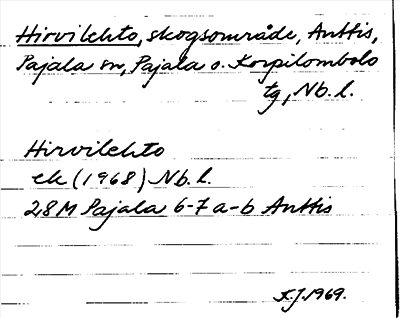 Hirvilehto, skogsområde, Anttis,
Pajala sn, Pajala o. Korpilombolo
tg, Nb. l.
Hirvilehto
ek (1968) Nb. l.
28M Pajala 6-7 a-b Anttis
K.J. 1969.